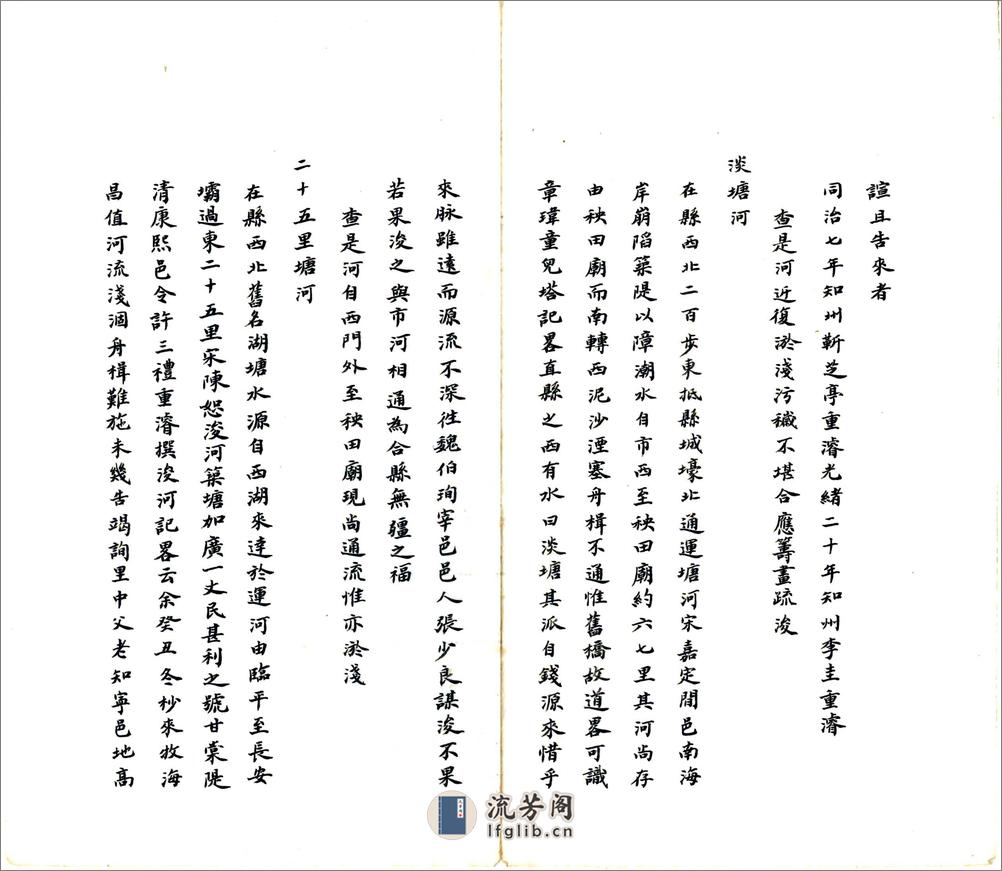 諠且告來者
同治七年知州靳芝亭重濬光緒二十年知州李圭重濬
查是河近復淤淺污穢不堪合應籌畫疏浚
淡塘河
在縣西北二百步東抵縣城壕北通運塘河宋嘉定間邑南海
岸崩陷築隄以障潮水自市西至秧田廟約六七里其河尚存
由秧田廟而南轉西泥沙湮塞舟楫不通惟舊橋故道畧可識
章瑋童兒塔記畧直縣之西有水曰淡塘其派自錢源來惜乎
來脉雖遠而源流不深徃魏伯珣宰邑邑人張少良謀浚不果
若果浚之與市河相通為合縣無疆之福
查是河自西門外至秧田廟現尚通流惟亦淤淺
二十五里塘河
在縣西北舊名湖塘水源自西湖來達於運河由臨平至長安
壩過東二十五里宋陳恕浚河築塘加廣一丈民甚利之號甘棠隄
清康熙邑令許三禮重濬撰浚河記畧云余癸丑冬杪來牧海
昌值河流淺涸舟楫難施未幾告竭詢里中父老知寧邑地高
流芳阁
lfglib.cn